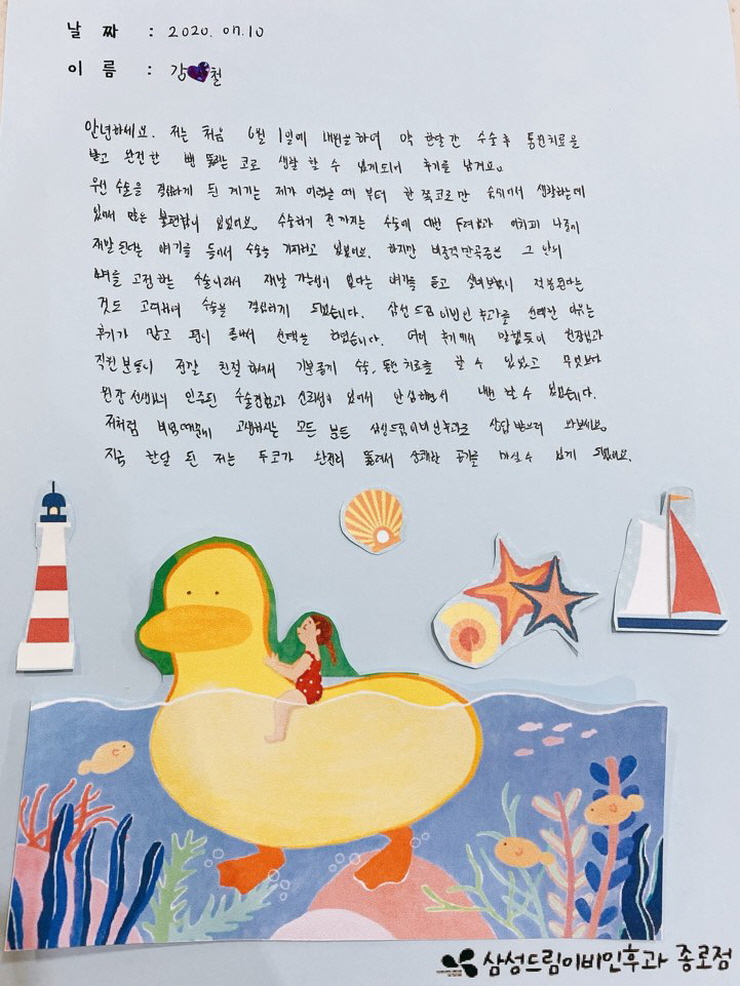 날 짜 : 2020. 07. 10
이 름 : 강 철
안녕하세요. 저는 처음 6월 1일에 내원을 하여 약 한달 간 수술 후 통원치료을
받고 완전한 뻥 뚫리는 코로 생활 할 수 있게되어 후기를 남겨요.
우선 수술을 결심하게 된 계기는 제가 어렸을 때 부터 한 쪽코로만 숨쉬어서 생활하는데
있어서 많은 불편함이 있었어요. 수술하기 전 까지는 수술에 대한 두려움과 어차피 나중에
재발 된다는 얘기를 들어서 수술을 기피하고 있었어요. 하지만 비중격만곡증은 그 안의
뼈를 고정하는 수술이라서 재발 가능성이 없다는 얘기를 듣고 실비보험이 적용된다는
것도 고려하여 수술을 결심하게 되었습니다. 삼성드림이비인후과를 선택한 이유는
후기가 많고 평이 좋아서 선택을 하였습니다. 여러 후기에서 말했듯이 원장님과
직원분들이 정말 친절하셔서 기분좋게 수술, 통원 치료를 할 수 있었고 무엇보다
원장선생님의 인증된 수술경험과 신뢰성이 있어서 안심하면서 내원 할 수 있었습니다.
저처럼 비염때문에 고생하시는 모든 분들 삼성드림이비인후과로 상담 받으러 와보세요.
지금 한달 된 저는 두코가 완전히 뚫려서 상쾌한 공기를 마실수 있게 되었어요.
삼성드림이비인후과 종로점